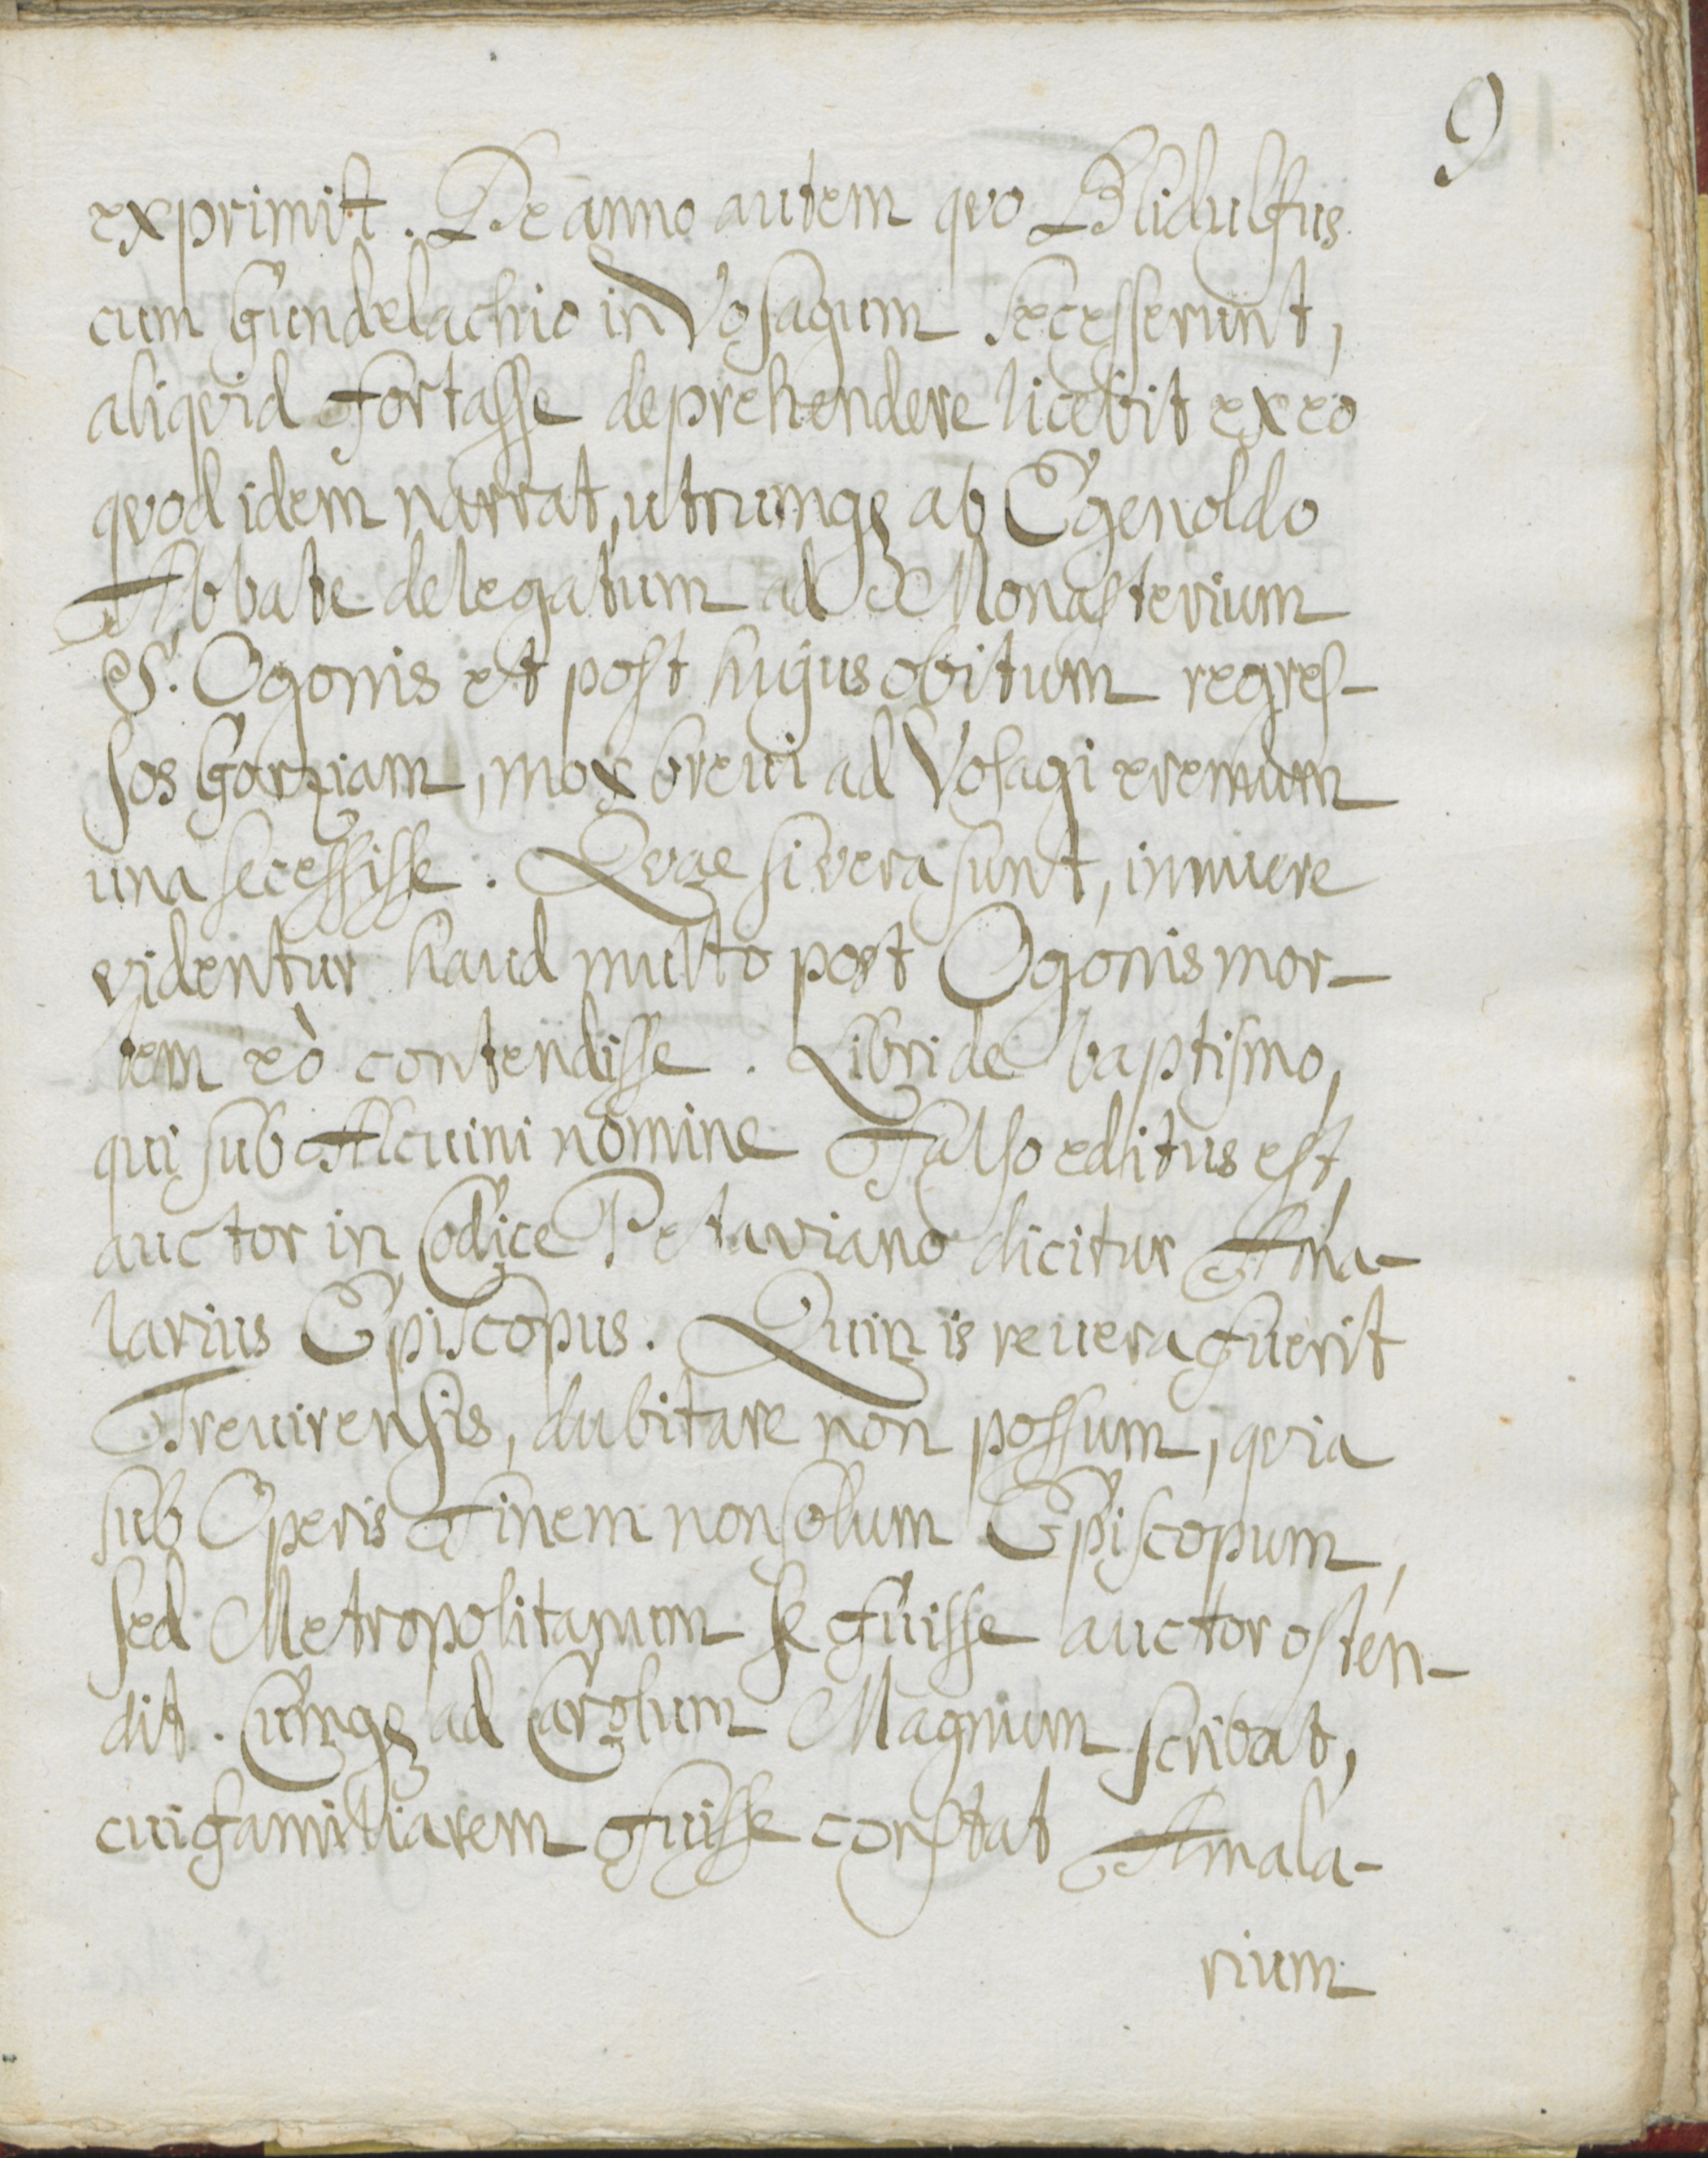 9
exprimit. De anno autem quo Blidulfus
cum Gundelachio in Vosagum secesserunt,
aliquid fortasse deprehendere licebit ex eo
quod idem narrat, utrumqȝ ab Egenoldo
Abbate delegatum ad Monasterium
S. Ogonis et post hujus obitum regres-
sos Gorziam, mox breui ad Vosagi eremum
una secessisse. Quae si vera sunt, innuere
videntur haud multo post Ogonis mor-
tem eò contendisse. Libri de baptismo,
qui sub Alcuini nomine falso editus est,
auctor in Codice Petaviano dicitur Ama-
larius Episcopus. Quin is reuera fuerit
Treuirensis, dubitare non possum, quia
sub Operis finem non solum Episcopum,
sed Metropolitanum se fuisse auctor osten-
dit. Cumqȝ ad Carolum Magnum scribat,
cui familiarem fuisse constat Amala-
rium